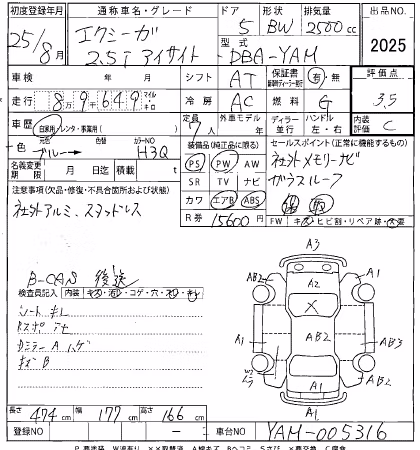 初度登録年月 通称車名・グレード ドア 形状 排気量 出品NO.
25/8月 エクシーガ 2.5iアイサイト 5 BW 2500cc
型式 DBA-YAM 2025
車検 年 月 シフト AT 保証書 有・無 評価点
走行 8万9千649 マイル キロ 冷房 AC 燃料 G 3.5
車歴 自家用/レンタ・事業用( ) 定員 7人 外車モデル年 ディーラー 並行 ハンドル 左・右 内装評価 C
色 元色 ブルー→ カラーNO H3Q
名義変更期限 月 日迄 積 月
装備品(純正品に限る) セールスポイント(正常に機能するもの)
PS PW AW 社外メモリーナビ
SR TV ナビ ガラスルーフ
カワ エアB ABS
R券 15600円 FW キズ・ヒビ割・リペア跡・交換要
注意事項(欠品・修復・不具合箇所および状態)
社外アルミ、スタッドレス
B-CAS 後送
検査員記入 内装
シートキレ
キズB
A3
AB2 A1
A1 AB2 AB3
A1
A1
長さ 474cm 幅 177cm 高さ 166cm
登録NO - 車台NO YAM-005316